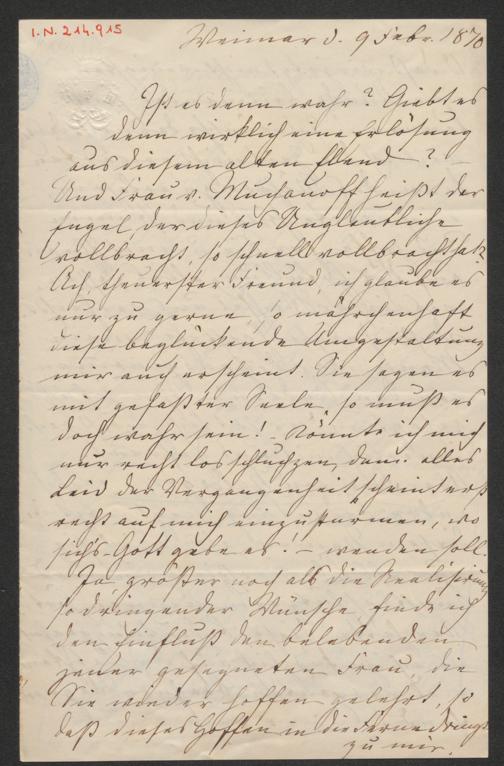 I.N. 214.915
Weimar d. 9 Febr. 1870
Ist es denn wahr? Giebt es
denn wirklich eine Erlösung
aus diesem alten Elend? –
Und Frau v. Muchanoff heißt der
Engel der dieses Unglaubliche
vollbracht, so schnell vollbracht hat.
Ach, theuerster Freund, ich glaube es
nur zu gerne, so mährchenhaft
diese beglückende Umgestaltung
mir auch erscheint. Sie sagen es
mit gefaßter Seele, so muß es
doch wahr sein! Könnte ich mich
nur recht losschluchzen, denn alles
Leid der Vergangenheit scheint erst
recht auf mich einzustürmen, wo
sich's – Gott gebe es! – wenden soll.
Ja größer noch als die Realisirung
so dringender Wünsche finde ich
den Einfluß den belebenden
jener gesegneten Frau, die
Sie wieder hoffen gelehrt, so
daß dieses Hoffen in die Ferne dringt
zu mir.